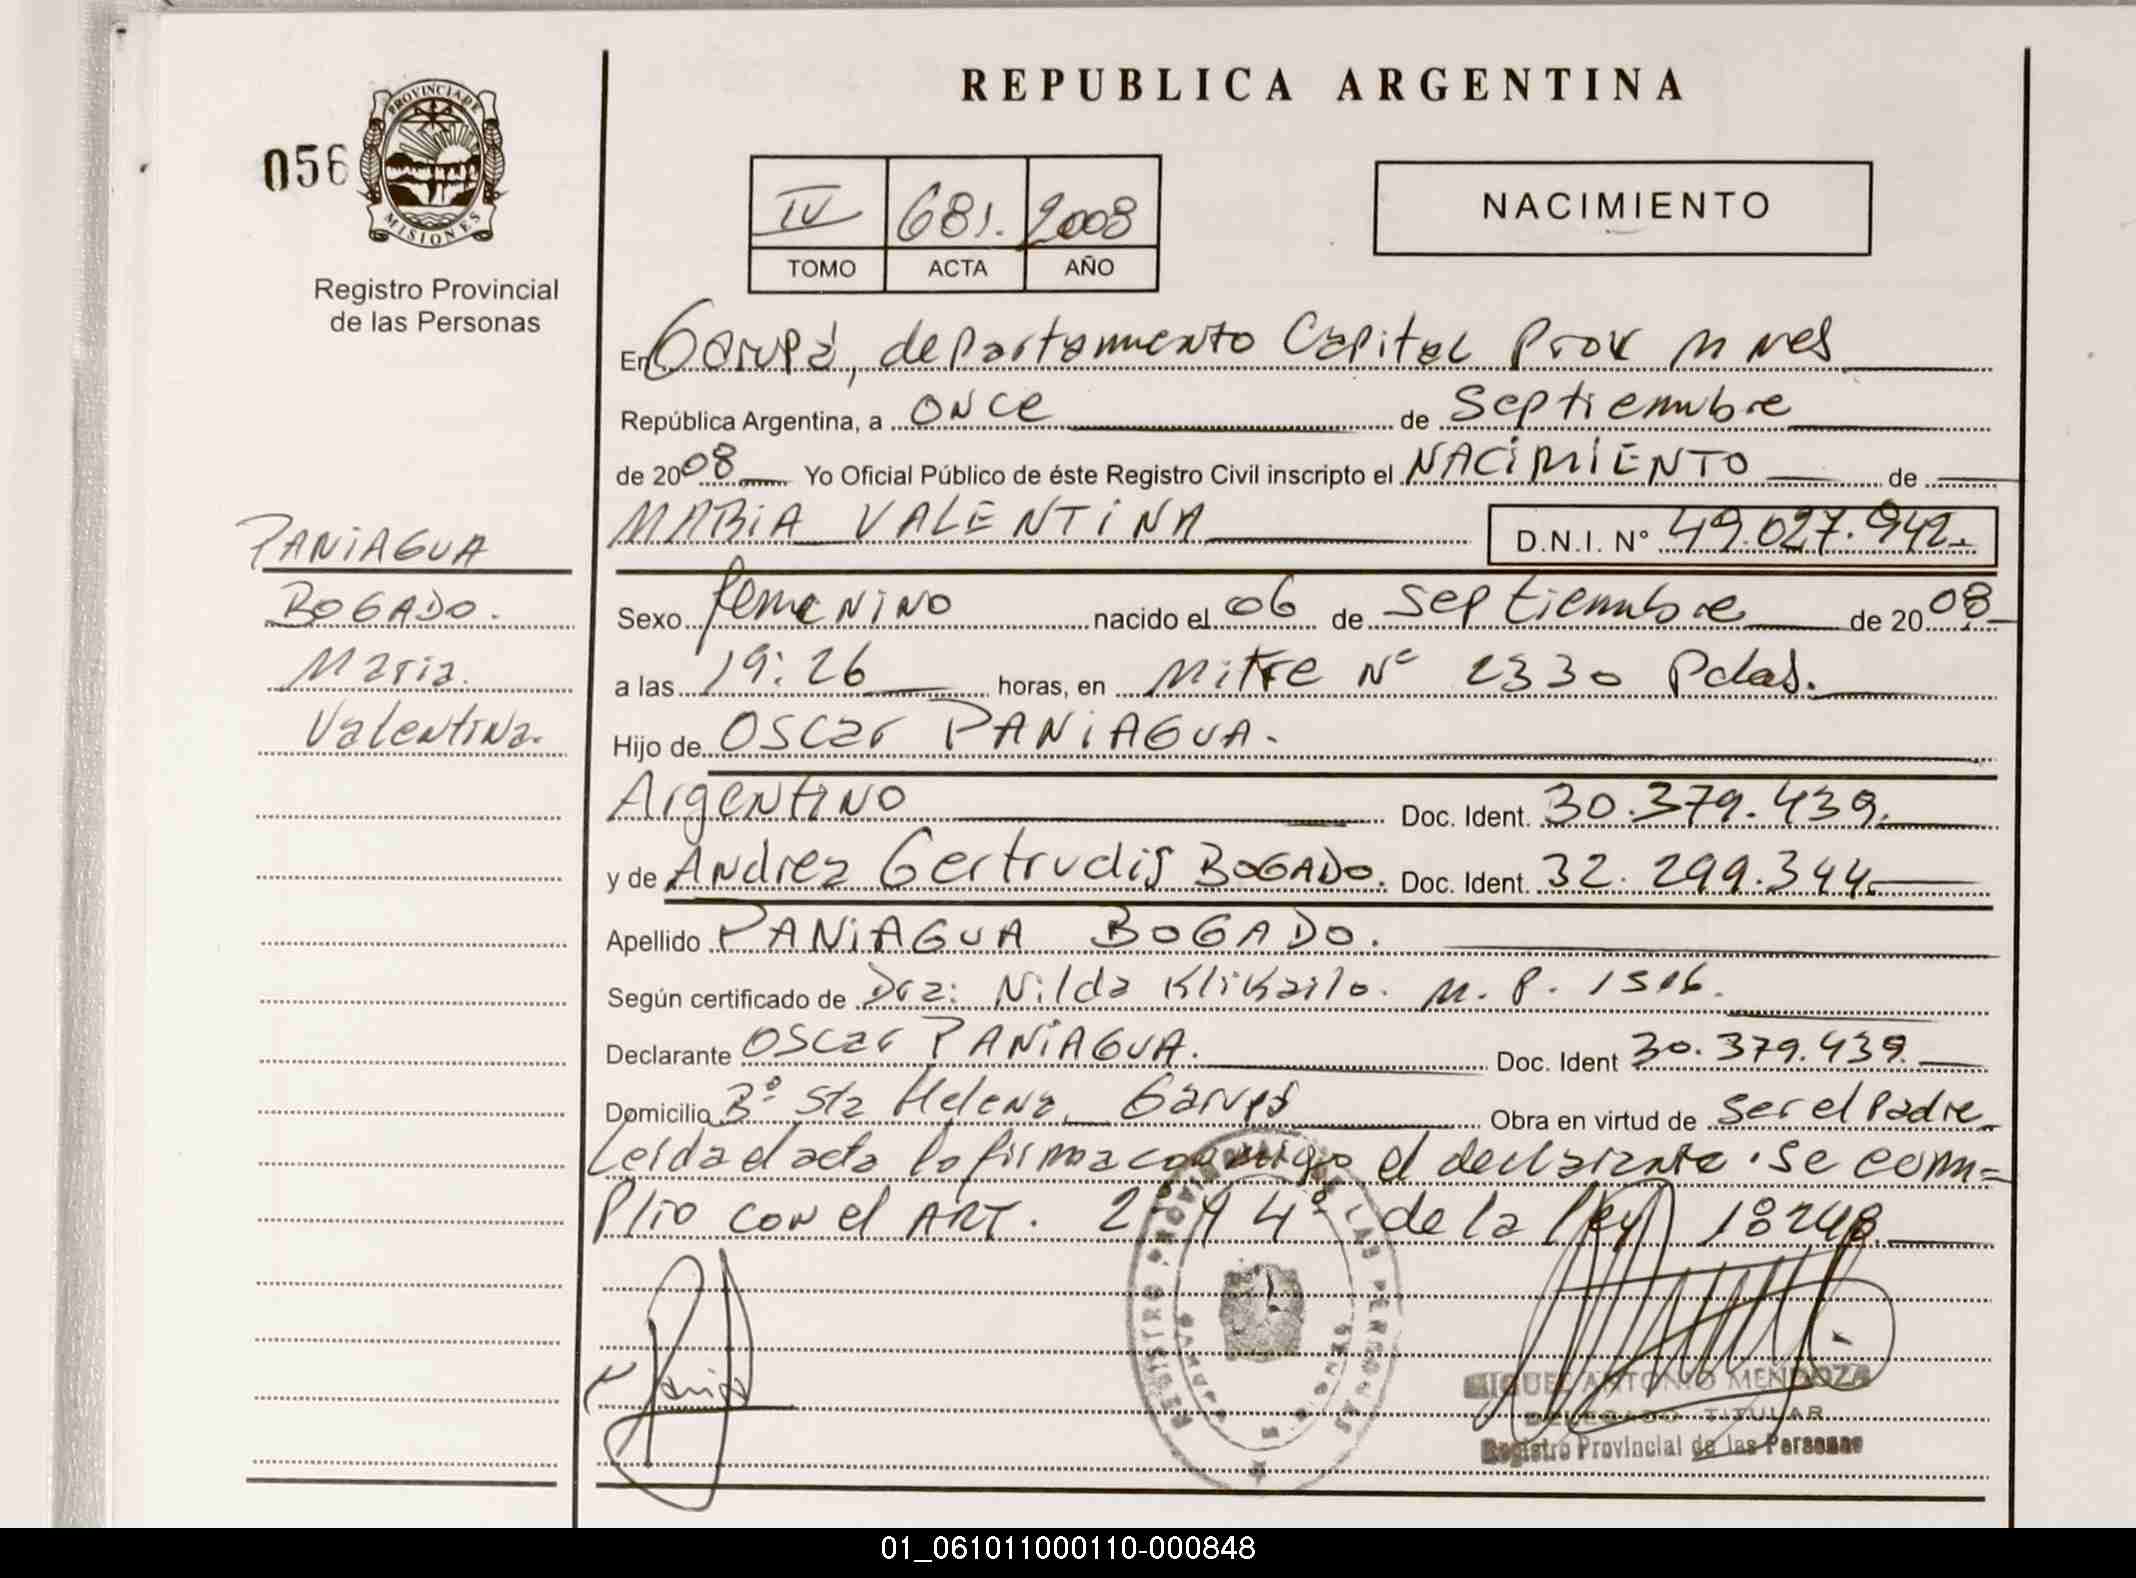 REPUBLICA ARGENTINA
056
PROVINCIA DE
MISIONES
Registro Provincial
de las Personas
IV 681. 2008
TOMO ACTA AÑO
NACIMIENTO
En Garupá, departamento Capital Prov Mnes
República Argentina, a once de Septiembre
de 2008 Yo Oficial Público de éste Registro Civil inscripto el NACIMIENTO de
MARIA VALENTINA D.N.I. N° 49.027.942.
PANIAGUA
BOGADO.
Maria.
Valentina.
Sexo femenino nacido el 06 de septiembre de 2008
a las 19:26 horas, en Mitre N° 2330 Pdas.
Hijo de Oscar PANIAGUA.
Argentino Doc. Ident. 30.379.439.
y de Andrea Gertrudis BOGADO. Doc. Ident. 32.299.344.
Apellido PANIAGUA BOGADO.
Según certificado de Dra: Nilda Klikailo. M.P. 1516.
Declarante Oscar PANIAGUA. Doc. Ident 30.379.439.
Domicilio B° Sta Helena, Garupá Obra en virtud de ser el Padre
Leida el acta la firma conmigo el declarante. Se cum=
plio con el ART. 2° y 4° de la ley 18248.
REGISTRO PROVINCIAL DE LAS PERSONAS
GARUPA
MISIONES
MIGUEL ANTONIO MENDOZA
DELEGADO TITULAR
Registro Provincial de las Personas
01_061011000110-000848